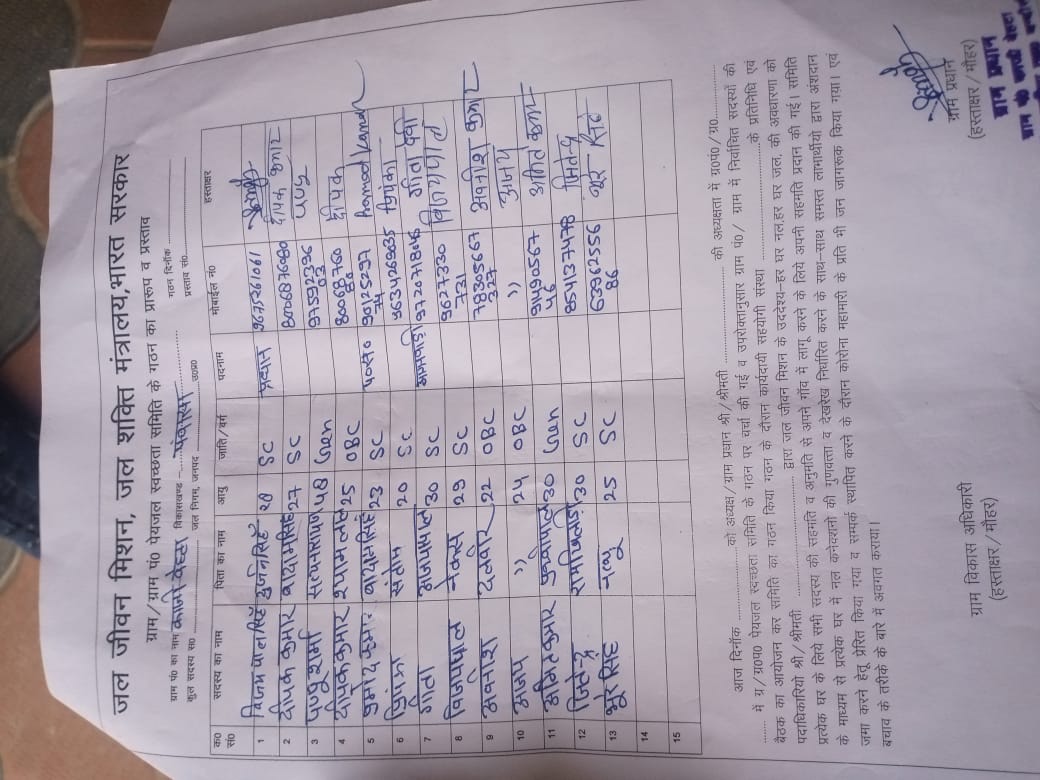 जल जीवन मिशन, जल शक्ति मंत्रालय,भारत सरकार
ग्राम/ग्राम पं0 पेयजल स्वच्छता समिति के गठन का प्रारूप व प्रस्ताव
ग्राम पं0 का नाम काजी खेड़ा विकासखण्ड – पंवासा गठन दिनॉक
कुल सदस्य स0 जल निगम, जनपद उ0प्र0 प्रस्ताव सं0
क0 सं0 सदस्य का नाम पिता का नाम आयु जाति/वर्ग पदनाम मोबाईल नं0 हस्ताक्षर
1 विजयपाल सिंह दुर्जन सिंह 28 SC प्रधान 9675261061
2 दीपक कुमार बादाम सिंह 27 SC 800687680 दीपक कुमार
3 पप्पू शर्मा सत्यप्रकाश 48 Gen 97592396 93 पप्पू
4 दीपक कुमार श्याम लाल 25 OBC 80068760 88 दीपक
5 प्रमोद कुमार बादाम सिंह 23 SC पं0स0 90125297 74 Pramod Kumar
6 प्रियंका संतोष 20 SC 9634126935 प्रियंका
7 गीता अजयपाल 30 SC आंगनबाड़ी 9720771848 गीता देवी
8 विजयपाल नेक्से 29 SC 9627330 731 विजयपाल
9 अवनीश दलवीर 22 OBC 78305667 327 अवनीश कुमार
10 अजय ,, 24 OBC ,, अजय
11 अमित कुमार पृथ्वीपाल 30 Gen 91490567 46 अमित कुमार
12 जितेन्द्र रामखिलाड़ी 30 SC 854137478 जितेन्द्र
13 भूरे सिंह नत्थू 25 SC 63962556 86 भूरे सिंह
14
15
आज दिनॉक को अध्यक्ष/ग्राम प्रधान श्री/श्रीमती की अध्यक्षता में ग्र0पं0/ग्र0
में ग्र/ग्र0प0 पेयजल स्वच्छता समिति के गठन पर चर्चा की गई व उपरोक्तानुसार ग्राम पं0/ ग्राम में निर्वाचित सदस्यों की
बैठक का आयोजन कर समिति का गठन किया गया गठन के दौरान कार्यदायी सहयोगी संस्था के प्रतिनिधि एवं
पदाधिकारियो श्री/श्रीमती द्वारा जल जीवन मिशन के उददेश्य–हर घर नल,हर घर जल, की अवधारणा को
प्रत्येक घर के लिये सभी सदस्य की सहमति व अनुमति से अपने गॉव में लागू करने के लिये अपनी सहमति प्रदान की गई। समिति
के माध्यम से प्रत्येक घर में नल कनेक्शनो की गुणवत्ता व देखरेख निर्धारित करने के साथ–साथ समस्त लाभार्थीयो द्वारा अंशदान
जमा करने हेतु प्रेरित किया गया व सम्पर्क स्थापित करने के दौरान कोरोना महामारी के प्रति भी जन जागरूक किया गया। एवं
बचाव के तरीके के बारे में अवगत कराया।
ग्राम विकास अधिकारी
(हस्ताक्षर/मौहर)
ग्राम प्रधान
(हस्ताक्षर/मौहर)
ग्राम प्रधान